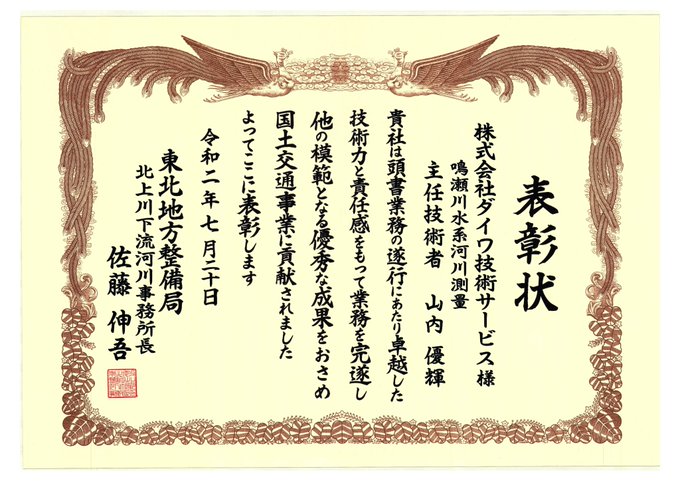 表彰状
株式会社ダイワ技術サービス様
鳴瀬川水系河川測量
主任技術者 山内優輝
貴社は頭書業務の遂行にあたり卓越した
技術力と責任感をもって業務を完遂し
他の模範となる優秀な成果をおさめ
国土交通事業に貢献されました
よってここに表彰します
令和二年七月二十日
東北地方整備局
北上川下流河川事務所長
佐藤伸吾